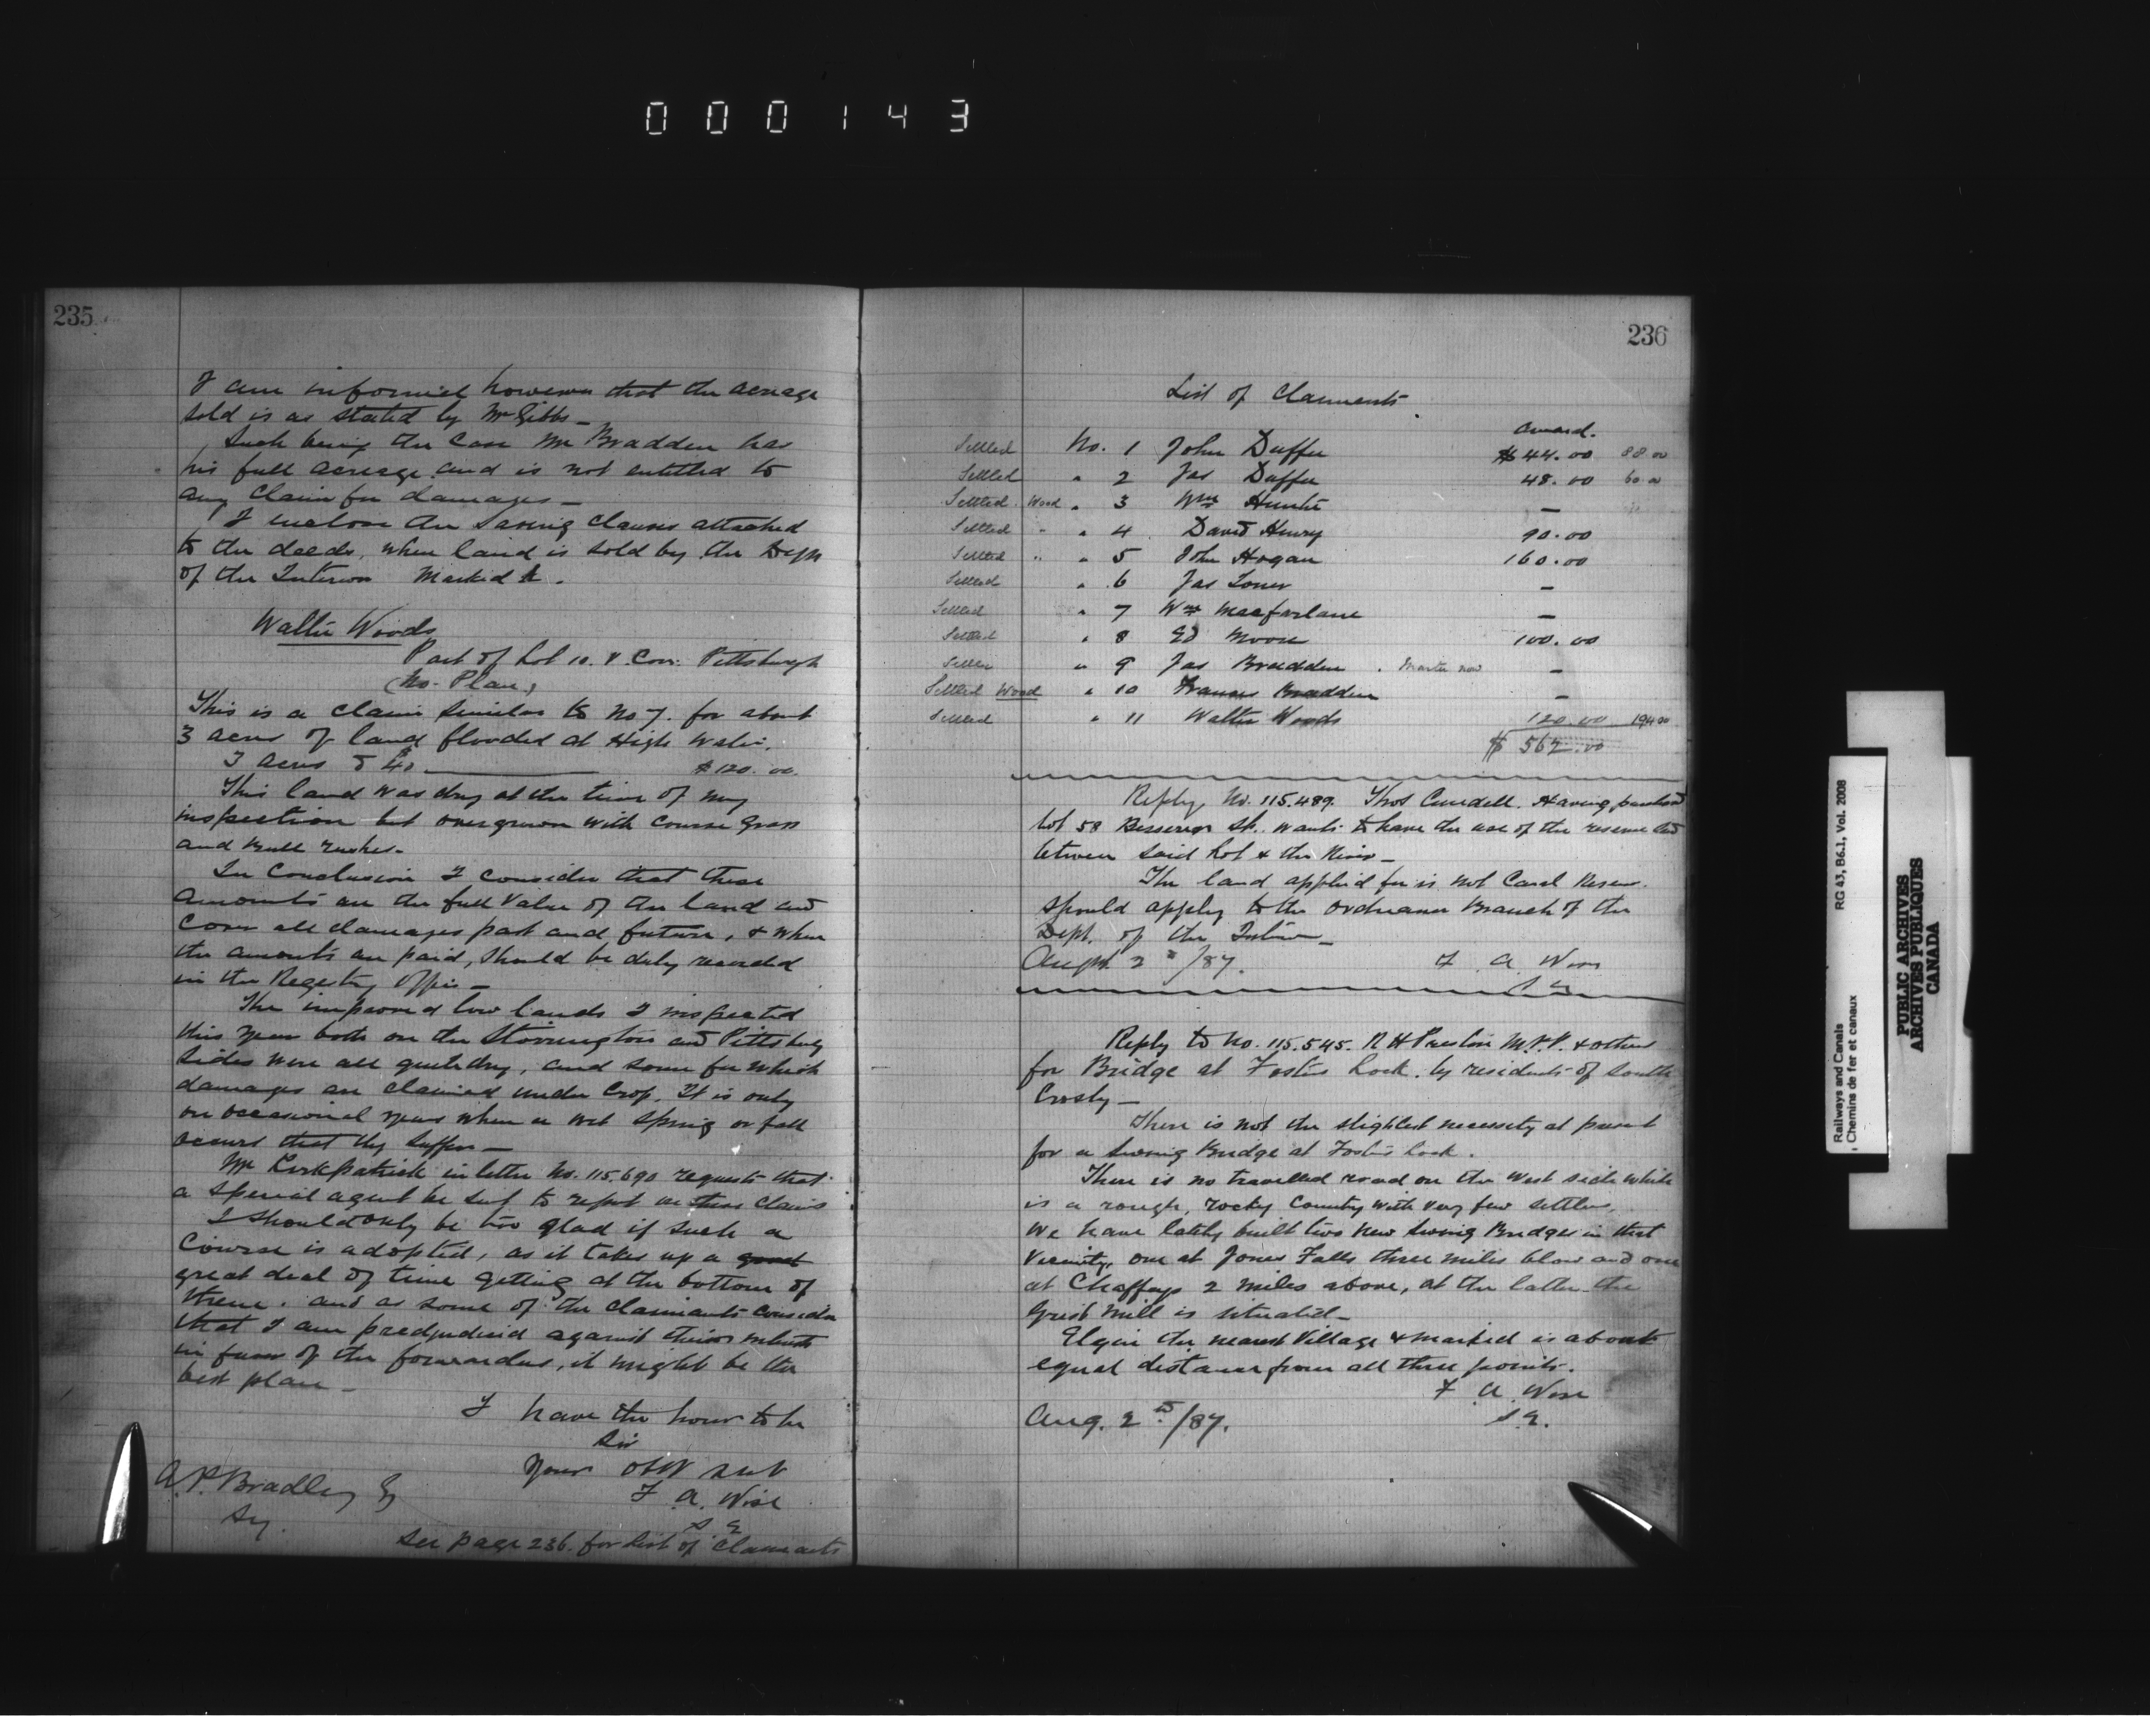 000143
235
I am informed however that the acreage
sold is as stated by Mr Gibbs _
Such being the case Mr Bradden has
his full acreage and is not entitled to
any claim for damages _
I inclose the saving clauses attached
to the deeds, when land is sold by the Dept
of the Interior Marked
Walter Woods
Part of Lot 10. V. Con: Pittsburgh
(No Plan)
This is a claim similar to No 7. for about
3 acres of land flooded at High Water.
3 acres @ 40 $120.00.
This land was dry at the time of my
inspection but overgrown with Course Grass
and Bull rushes.
In Conclusion I consider that these
amounts are the full Value of the land and
Cover all damages past and future, & when
the amounts are paid, should be duly recorded
in the Registry Office _
The improved low lands I inspected
this year both on the Storrington and Pittsburg
sides were all quite dry, and some for which
damages are claimed under Crop. It is only
on occasional years when a wet Spring or fall
occurs that they suffer _
Mr Kirkpatrick in letter No. 115.690 requests that
a special agent be sent to report on these claims
I should only be too glad if such a
Course is adopted, as it takes up a good
great deal of time getting at the bottom of
them. and as some of the claimants consider
that I am predjudiced against their interests
in favor of the forwarders, it might be the
best plan _
I have the honor to be
Sir
Your obt Svt
F. A. Wise
S E
A. P. Bradley Esq
Sy.
See page 236. for List of Claimants
236
List of Claimants
Award.
Settled No. 1 John Duffer $44.00 88.00
Settled " 2 Jas Duffer 48.00 60.00
Settled Wood " 3 Wm Hunter —
Settled " " 4 David Henry 90.00
Settled " " 5 John Hogan 160.00
Settled " 6 Jas Toner —
Settled " 7 Wm Macfarlane —
Settled " 8 Ed Moore 100.00
Settled " 9 Jas Bradden . now —
Settled Wood " 10 Francis Bradden —
Settled " 11 Walter Woods 120.00 194.00
$ 562.00
Reply, No. 115.489. Thos Cundell. Having purchased
Lot 58 Besserer St. wants to have the use of the reserve land
between said Lot & the River _
The land applied for is not Canal Reserve.
Should apply to the Ordnance Branch of the
Dept. of the Interior _
Augst 2nd/87. F. A. Wise
S E
Reply to No. 115.545. R H Preston M.P.P. & others
for Bridge at Fosters Lock. by residents of South
Crosby _
There is not the slightest necessity at present
for a Swing Bridge at Fosters Lock.
There is no travelled road on the West side which
is a rough, rocky Country with very few settlers.
We have lately built two new Swing Bridges in that
Vicinity, one at Jones Falls three miles below and one
at Chaffeys 2 miles above, at the latter the
Grist Mill is situated _
Elgin the nearest Village & market is about
equal distance from all three points.
F. A. Wise
S. E.
Aug. 2nd/87.
Railways and Canals RG 43, B6.1, Vol. 2008
Chemins de fer et canaux
PUBLIC ARCHIVES
ARCHIVES PUBLIQUES
CANADA